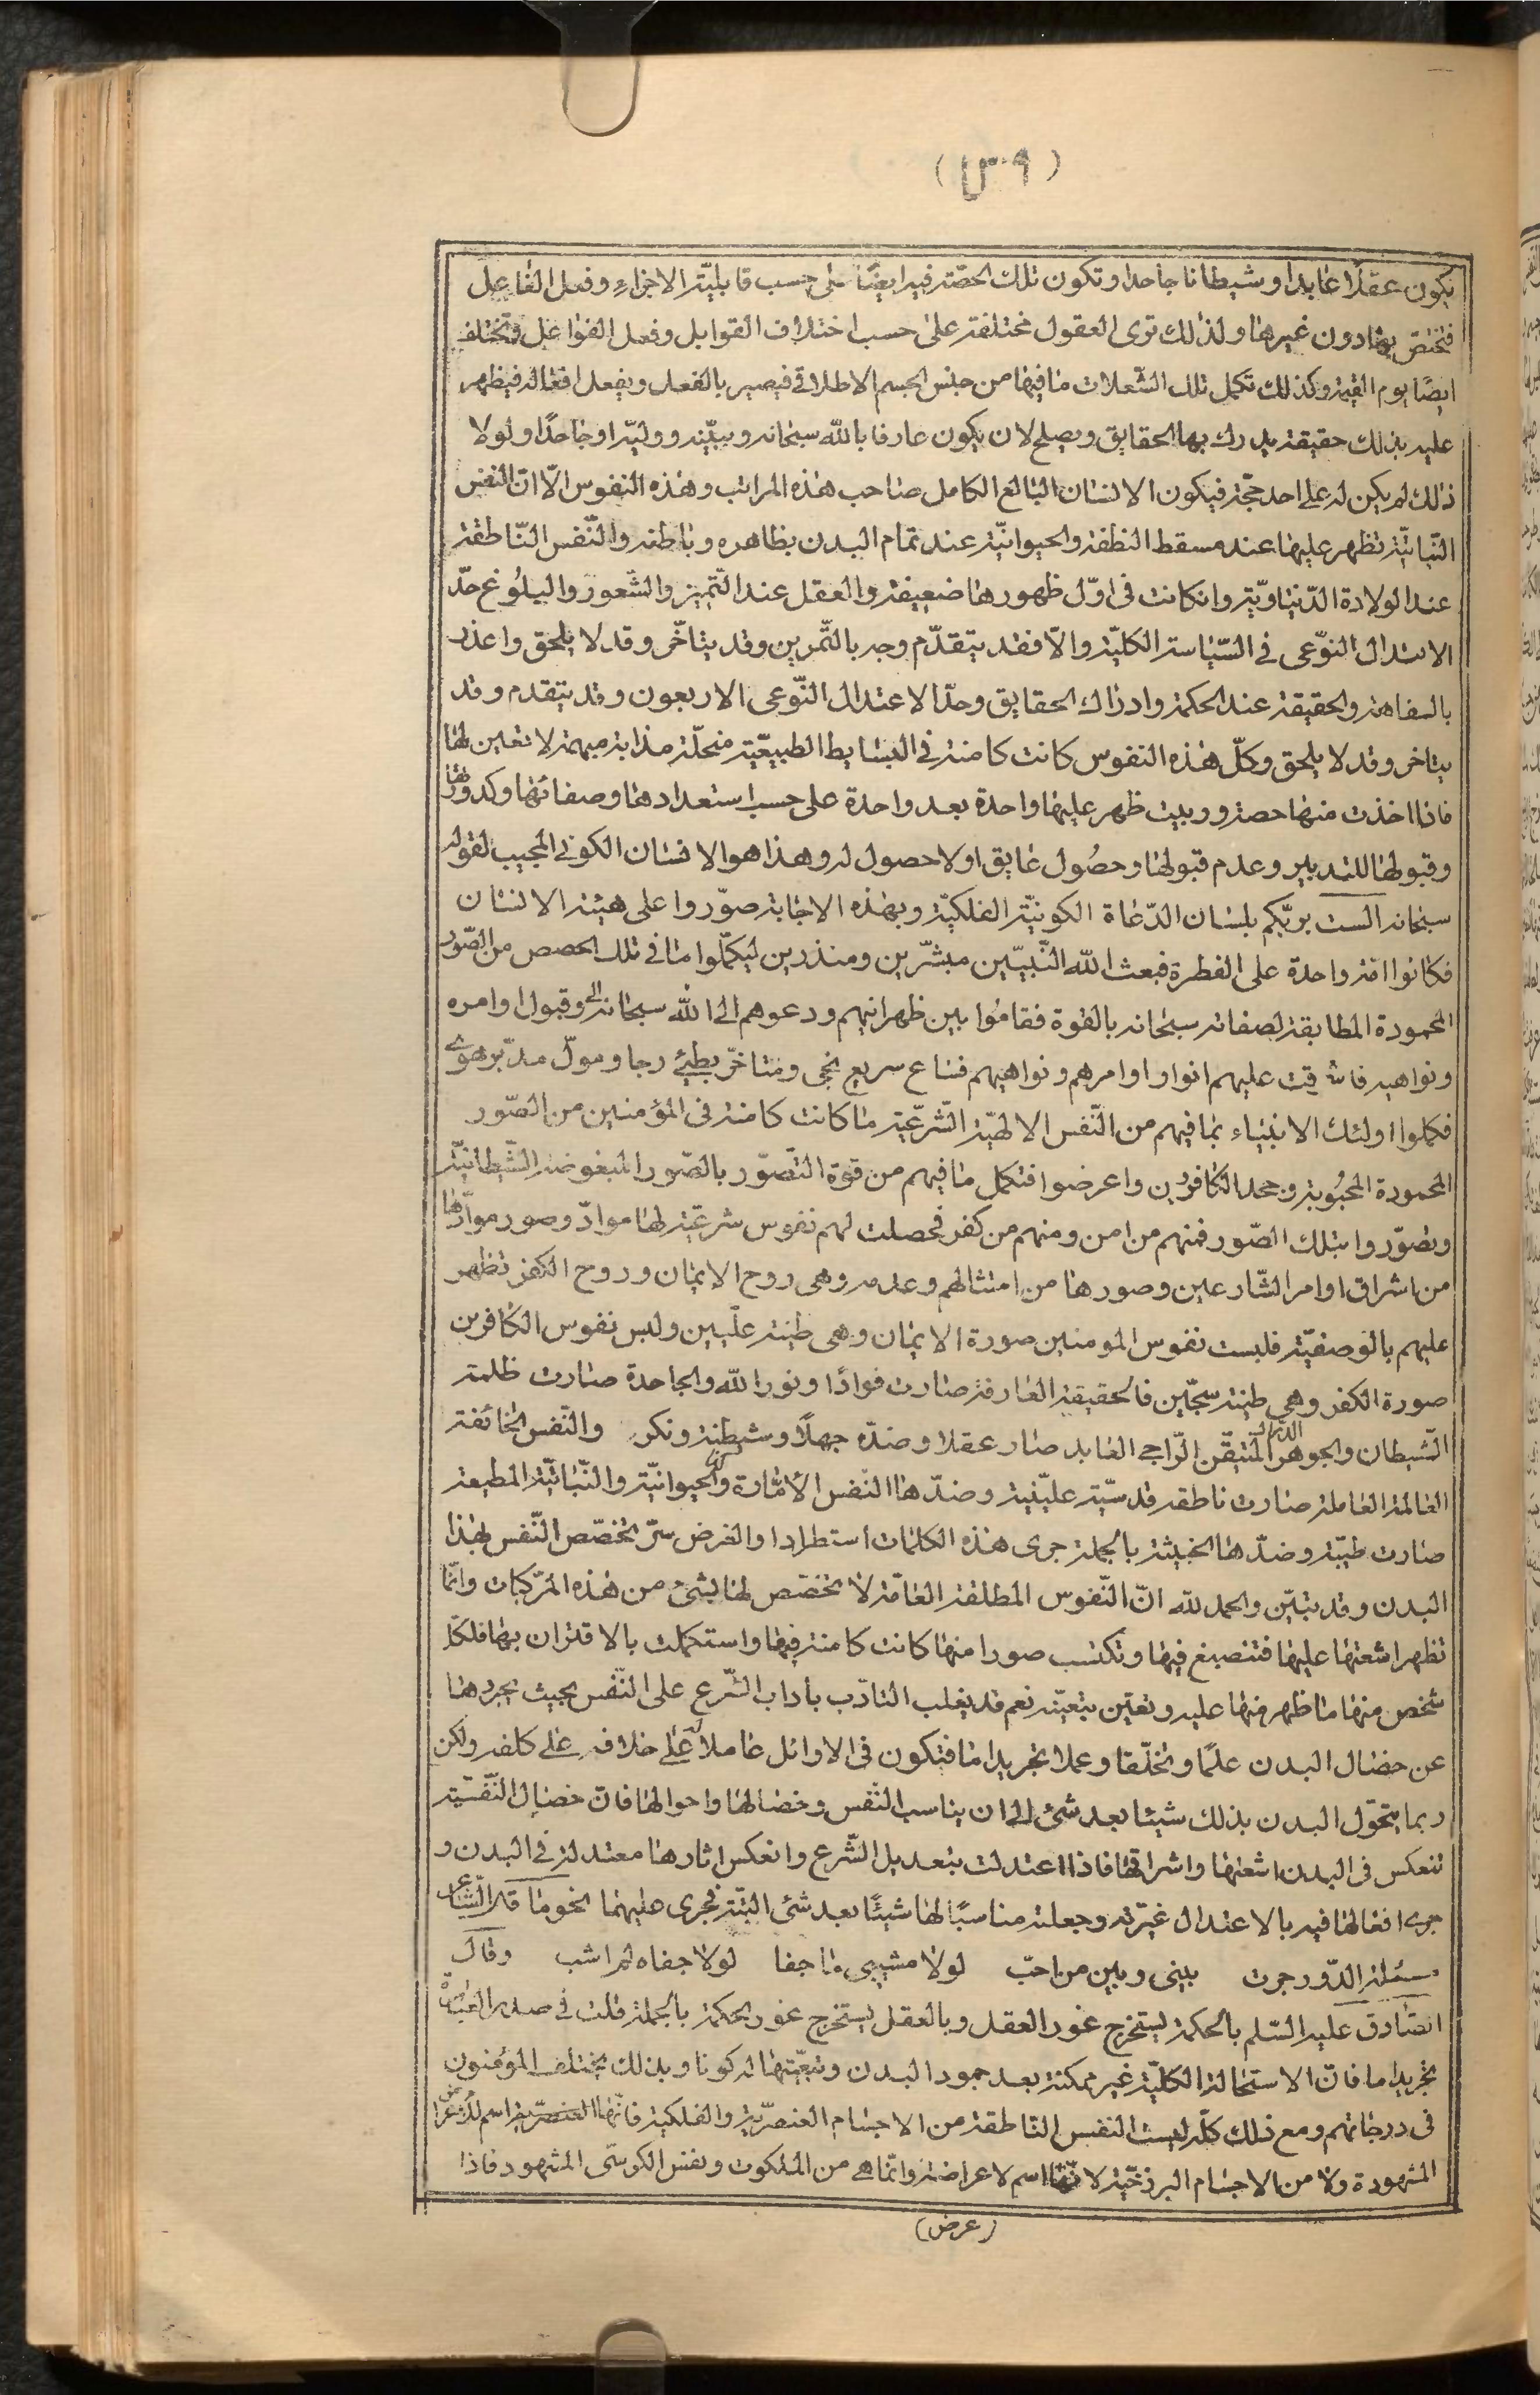 يكون عقلا عابدا وشيطانا جاحدا وتكون تلك الحصة فيه ايضا على حسب قابلية الاجزاء وفعل الفاعل
فتختص بها دون غيرها ولذلك ترى العقول مختلفة على حسب اختلاف القوابل وفعل الفواعل وتختلف
ايضا يوم القيمة وكذلك تكمل تلك الشعلات ما فيها من جنس الجسم الاطلاقي فيصير بالفعل ويفعل افعاله فيظهر
عليه بذلك حقيقة يدرك بها الحقايق ويصلح لان يكون عارفا بالله سبحانه ونبيه ووليه او جاحدا ولولا
ذلك لم يكن له على احد حجة فيكون الانسان البالغ الكامل صاحب هذه المراتب وهذه النفوس الّا انّ النفس
النّباتيّة تظهر عليها عند مسقط النطفة والحيوانيّة عند تمام البدن بظاهره وباطنه والنّفس النّاطقة
عند الولادة الدّنياويّة وانكانت في اوّل ظهورها ضعيفة والعقل عند التّميز والشّعور والبلُوغ حدّ
الاعتدال النوّعى في السّياسة الكليّة والّا فقد يتقدّم وجه بالتّمرين وقد يتاخّر وقد لا يلحق واعذر
بالسفاهة والحقيقة عند الحكمة وادراك الحقايق وحدّ الاعتدال النّوعى الاربعون وقد يتقدم وقد
يتاخر وقد لا يلحق وكلّ هذه النفوس كانت كامنة في البسايط الطبيعّية منحلّة مذابة مبهمة لا تعين لها
فاذا اخذت منها حصة وربيت ظهر عليها واحدة بعد واحدة على حسب استعدادها وصفائها وكدورتها
وقبولها للتدبير وعدم قبولها وحصُول عايق اولا حصول له وهذا هو الانسان الكونى المجيب لقوله
سبحانه الست بربّكم بلسان الدّعاة الكونيّة الفلكيّة وبهذه الاجابة صوّروا على هيئة الانسان
فكانوا امة واحدة على الفطرة فبعث الله النّبيّين مبشّرين ومنذرين ليكمّلوا ما في تلك الحصص من الصّور
المحمودة المطابقة لصفاته سبحانه بالقوة فقامُوا بين ظهرانيهم ودعوهم الى الله سبحانه والى قبول اوامره
ونواهيه فاشرقت عليهم انوار اوامرهم ونواهيهم فساع سريع نجى ومتاخّر بطئ رجا ومولّ مدبّر هوى
فكملوا اولئك الانبياء بما فيهم من النّفس الالهيّة الشّرعيّة ما كانت كامنة في المؤمنين من الصّور
المحمودة المحبُوبة وجحد الكافرُين واعرضوا فتكمل ما فيهم من قوة التّصوّر بالصّور المبغوضة الشّيطانيّة
وتصوّروا بتلك الصّور فمنهم من امن ومنهم من كفر فحصلت لهم نفوس شرعيّة لها موادّ وصور موادّها
من اشراق اوامر الشّارعين وصورها من امتثالهم وعدمه وهى روح الايمان وروح الكفر تظهر
عليهم بالوصفيّة فلبست نفوس المومنين صورة الايمان وهى طينة علّيين ولبس نفوس الكافرين
صورة الكفر وهى طينة سجّين فالحقيقة العارفة صارت فوادًا ونورا لله والجاحدة صارت ظلمة
الشّيطان والجوهر الدراك المتيقّن الرّاجى العابد صار عقلا وضدّه جهلًا وشيطنة ونكر والنّفس الخائفة
العالمة العاملة صارت ناطقة قدسّية عليّنية وضدّها النّفس الأمّارة والحيوانيّة والنّباتيّة المطيعة
صارت طيّبة وضدّها الخبيثة بالجملة جرى هذه الكلمات استطرادا والغرض سرّ تخصّص النّفس بهذا
البدن وقد تبيّن والحمد لله انّ النّفوس المطلقة العامّة لا تخصّص لها بشئ من هذه المركّبات وانّما
تظهر اشعتها عليها فتنصبغ فيها وتكتسب صورا منها كانت كامنة فيها واستكملت بالاقتران بها فلكلّ
شخص منها ما ظهر منها عليه وتعيّن بتعيّنه نعم قد يغلب التادّب باداب الشّرع على النّفس بحيث يجردها
عن خصال البدن علمًا وتخلّقا وعملا تجريدا ما فتكون في الاوائل عاملا على خلافه على كلفة ولكن
ربما يتحوّل البدن بذلك شيئا بعد شئ الى ان يناسب النّفس وخصالها واحوالها فانّ خصال النّفسيّة
تنعكس في البدن اشعتها واشراقها فاذا اعتدلت بتعديل الشّرع وانعكس اثارها معتدلة في البدن و
جرى افعالها فيه بالاعتدال غيرّته وجعلته مناسبًا لها شيئًا بعد شئ البتّة فجرى عليهما نحو ما قاله الشّاعر
مسئلة الدّور جرت بينى وبين من احبّ لولا مشيبى ما جفا لولا جفاه لم اشب وقال
الصّادق عليه السّلم بالحكمة يستخرج غور العقل وبالعقل يستخرج غور الحكمة بالجملة قلت في صدر العبارة
تجريدا ما فانّ الاستحالة الكليّة غير ممكنة بعد جمود البدن وتبعّيتها له كونا وبذلك يختلف المؤمنون
في درجاتهم ومع ذلك كلّه ليست النفس الناطقة من الاجسام العنصرّية والفلكية فانّها اسم للاعراض
المشهودة ولا من الاجسام البرزخيّة لانّها اسم لاعراضه وانّما هى من الملكوت ونفس الكرسّى المشهود فاذا
(عرض)